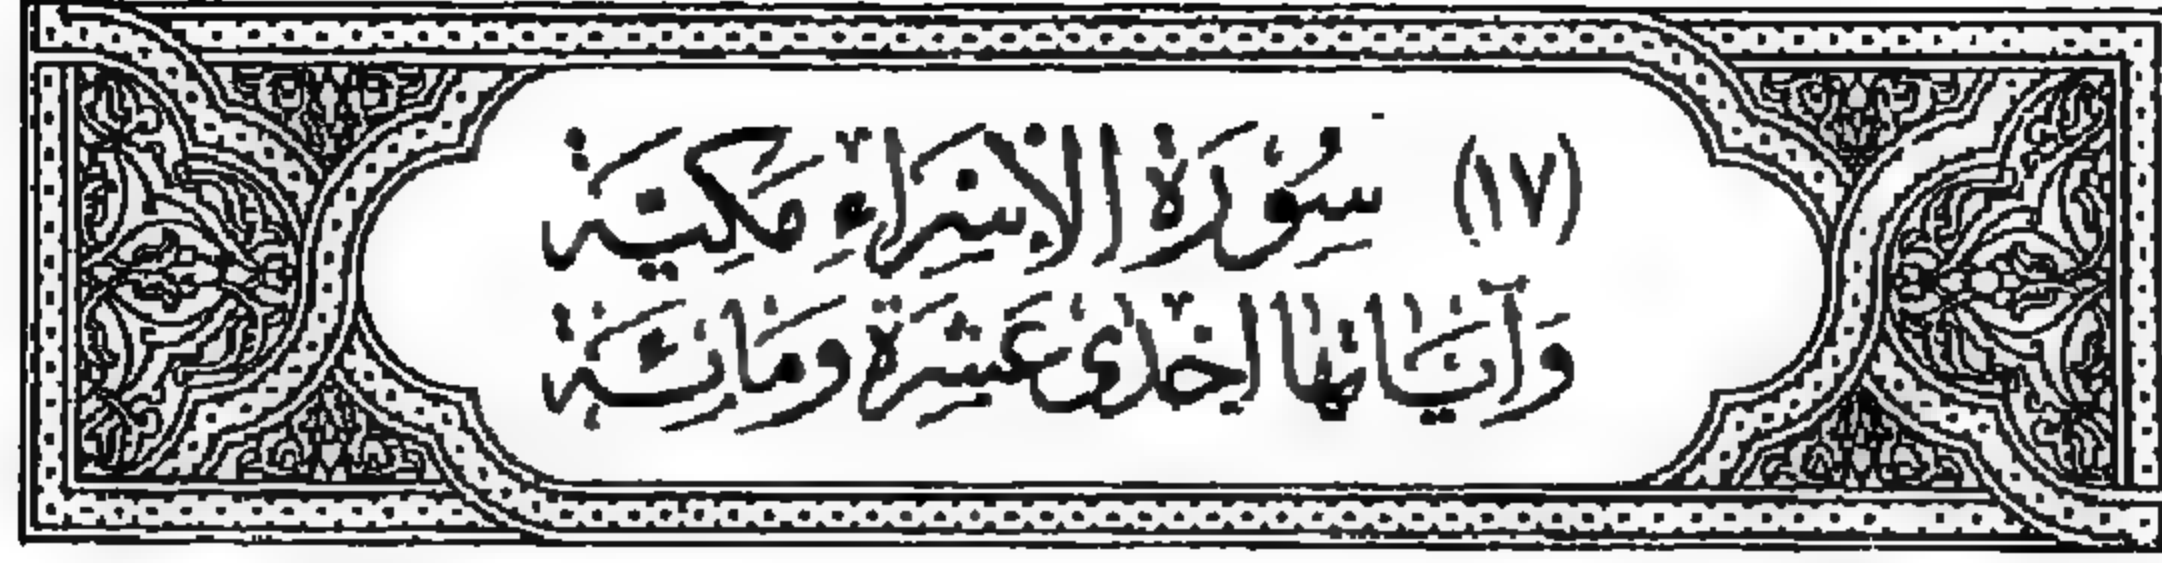 (١٧) سُوْرَةُ الْإِسْرَاءِ مَكِيَّةٌ
وَآيَاتُهَا اِحْدٰى عَشِرَةَ وَمَائِةٌ